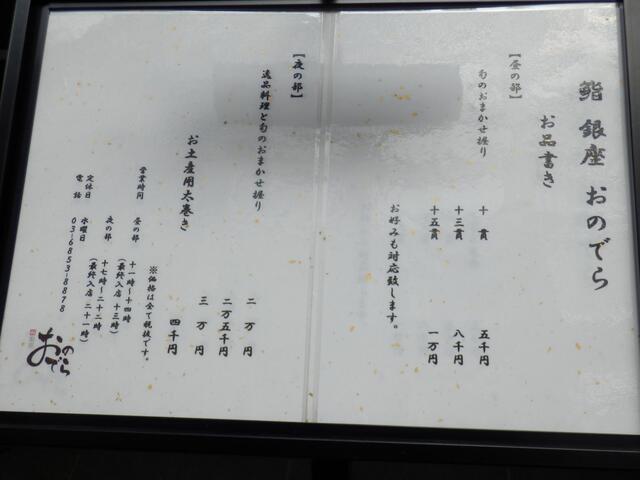 鮨 銀座 おのでら
お品書き
【昼の部】
旬のおまかせ握り
十貫 五千円
十三貫 八千円
十五貫 一万円
お好みも対応致します。
【夜の部】
逸品料理と旬のおまかせ握り
二万円
二万五千円
三万円
お土産用太巻き 四千円
※価格は全て税抜です。
営業時間 昼の部 十一時～十四時
（最終入店 十三時）
夜の部 十七時～二十二時
（最終入店 二十一時）
定休日 水曜日
電話 03-6853-8878
おのでら